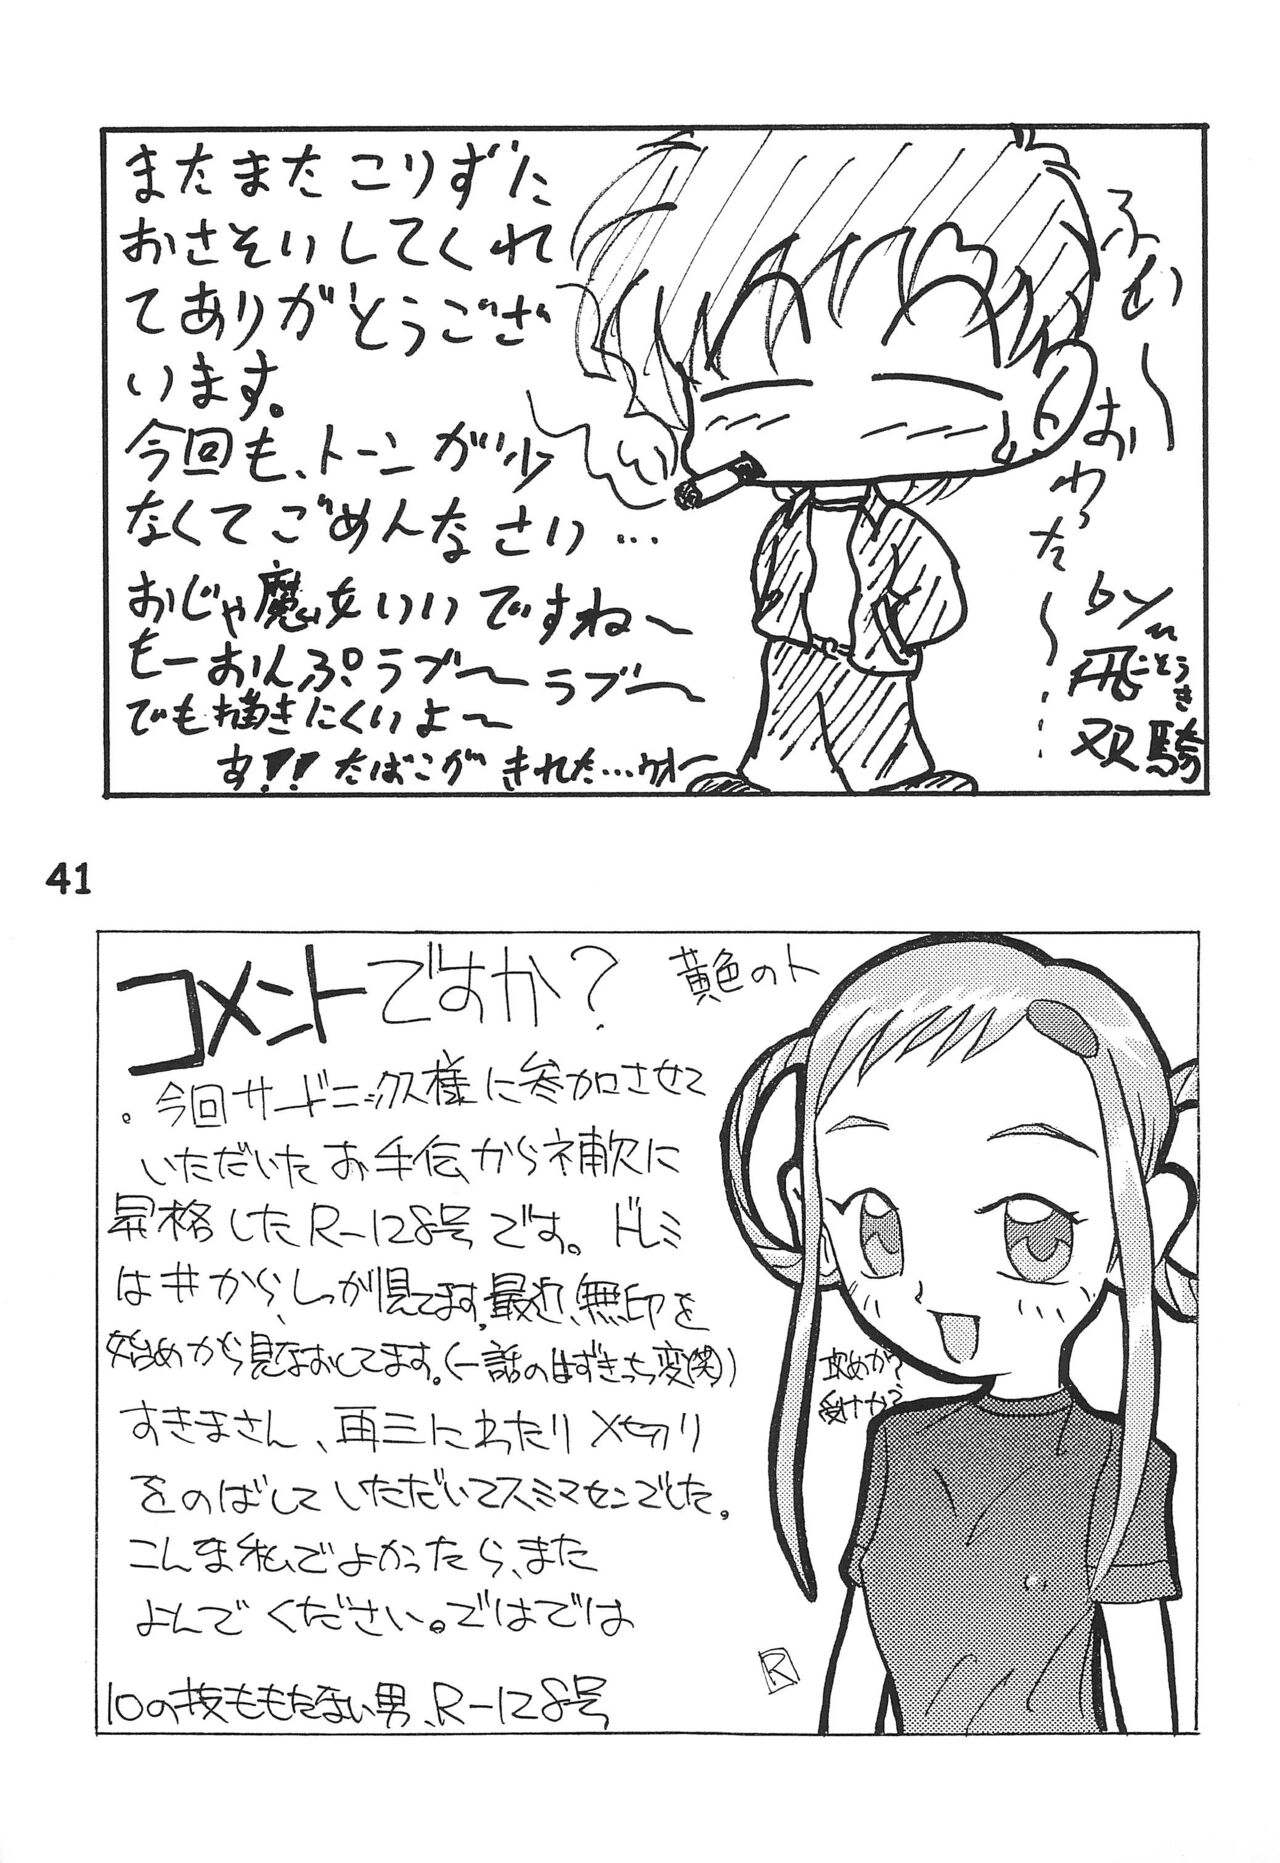 またまたこりずた
おさそいしてくれ
てありがとうござ
います。
今回も、トーンが少
なくてごめんなさい…
おじゃ魔女いいですね〜
もーおんぷラブ〜ラブ〜
でも描きにくいよ〜
す!!たばこがきれた…
ふい〜
おわった〜…
by
飛双騎
ことうき
41
コメントですか?
黄色のト
。今回サードニックス様に参加させて
いただいたお手伝から補欠に
昇格したR-128号です。ドレミ
は#から、しっか見てます。最近、無印を
始めから見なおしてます。(一話のはずきっち変(笑))
すきまさん、再三にわたり〆切り
をのばしていただいてスミマセンでした。
こんな私でよかったら、また
よんでください。ではでは
10の技ももたない男、R-128号
攻めか?
受けか?
R